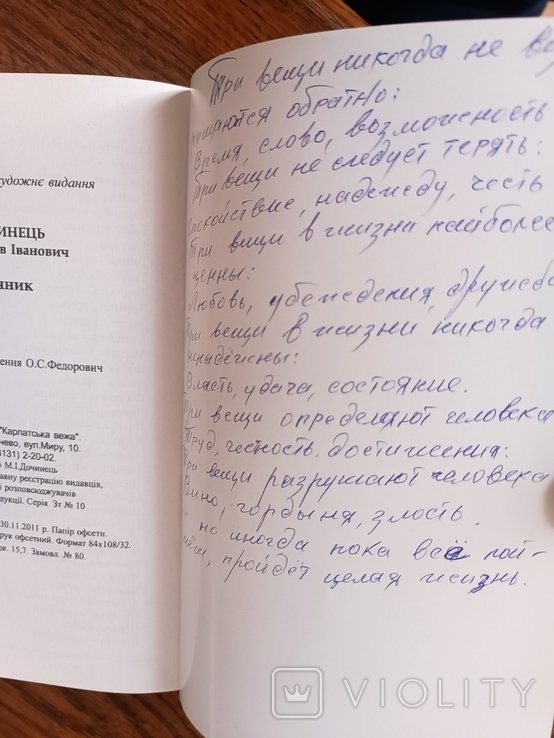 удожнє видання
ИНЕЦЬ
в Іванович
ник
ення О.С.Федорович
"Карпатська вежа".
чево, вул.Миру, 10.
4131) 2-20-02.
р М.І.Дочинець
авну реєстрацію видавців,
і розповсюджувачів
дукції. Серія Зт № 10
30.11.2011 р. Папір офсетн.
рук офсетний. Формат 84х108/32.
рк. 15,7. Замовл. № 80.
Три вещи никогда не во
щаются обратно:
Время, слово, возможность
Три вещи не следует терять:
Спокойствие, надежду, честь
Три вещи в жизни наиболее
ценны:
Любовь, убеждения, дружба
Три вещи в жизни никогда
ненадёжны:
Власть, удача, состояние.
Три вещи определяют человека
Труд, честность. достижения:
Три вещи разрушают человека
Вино, гордыня, злость.
но иногда пока всё пой-
мёш, пройдёт целая жизнь.
VIOLITY